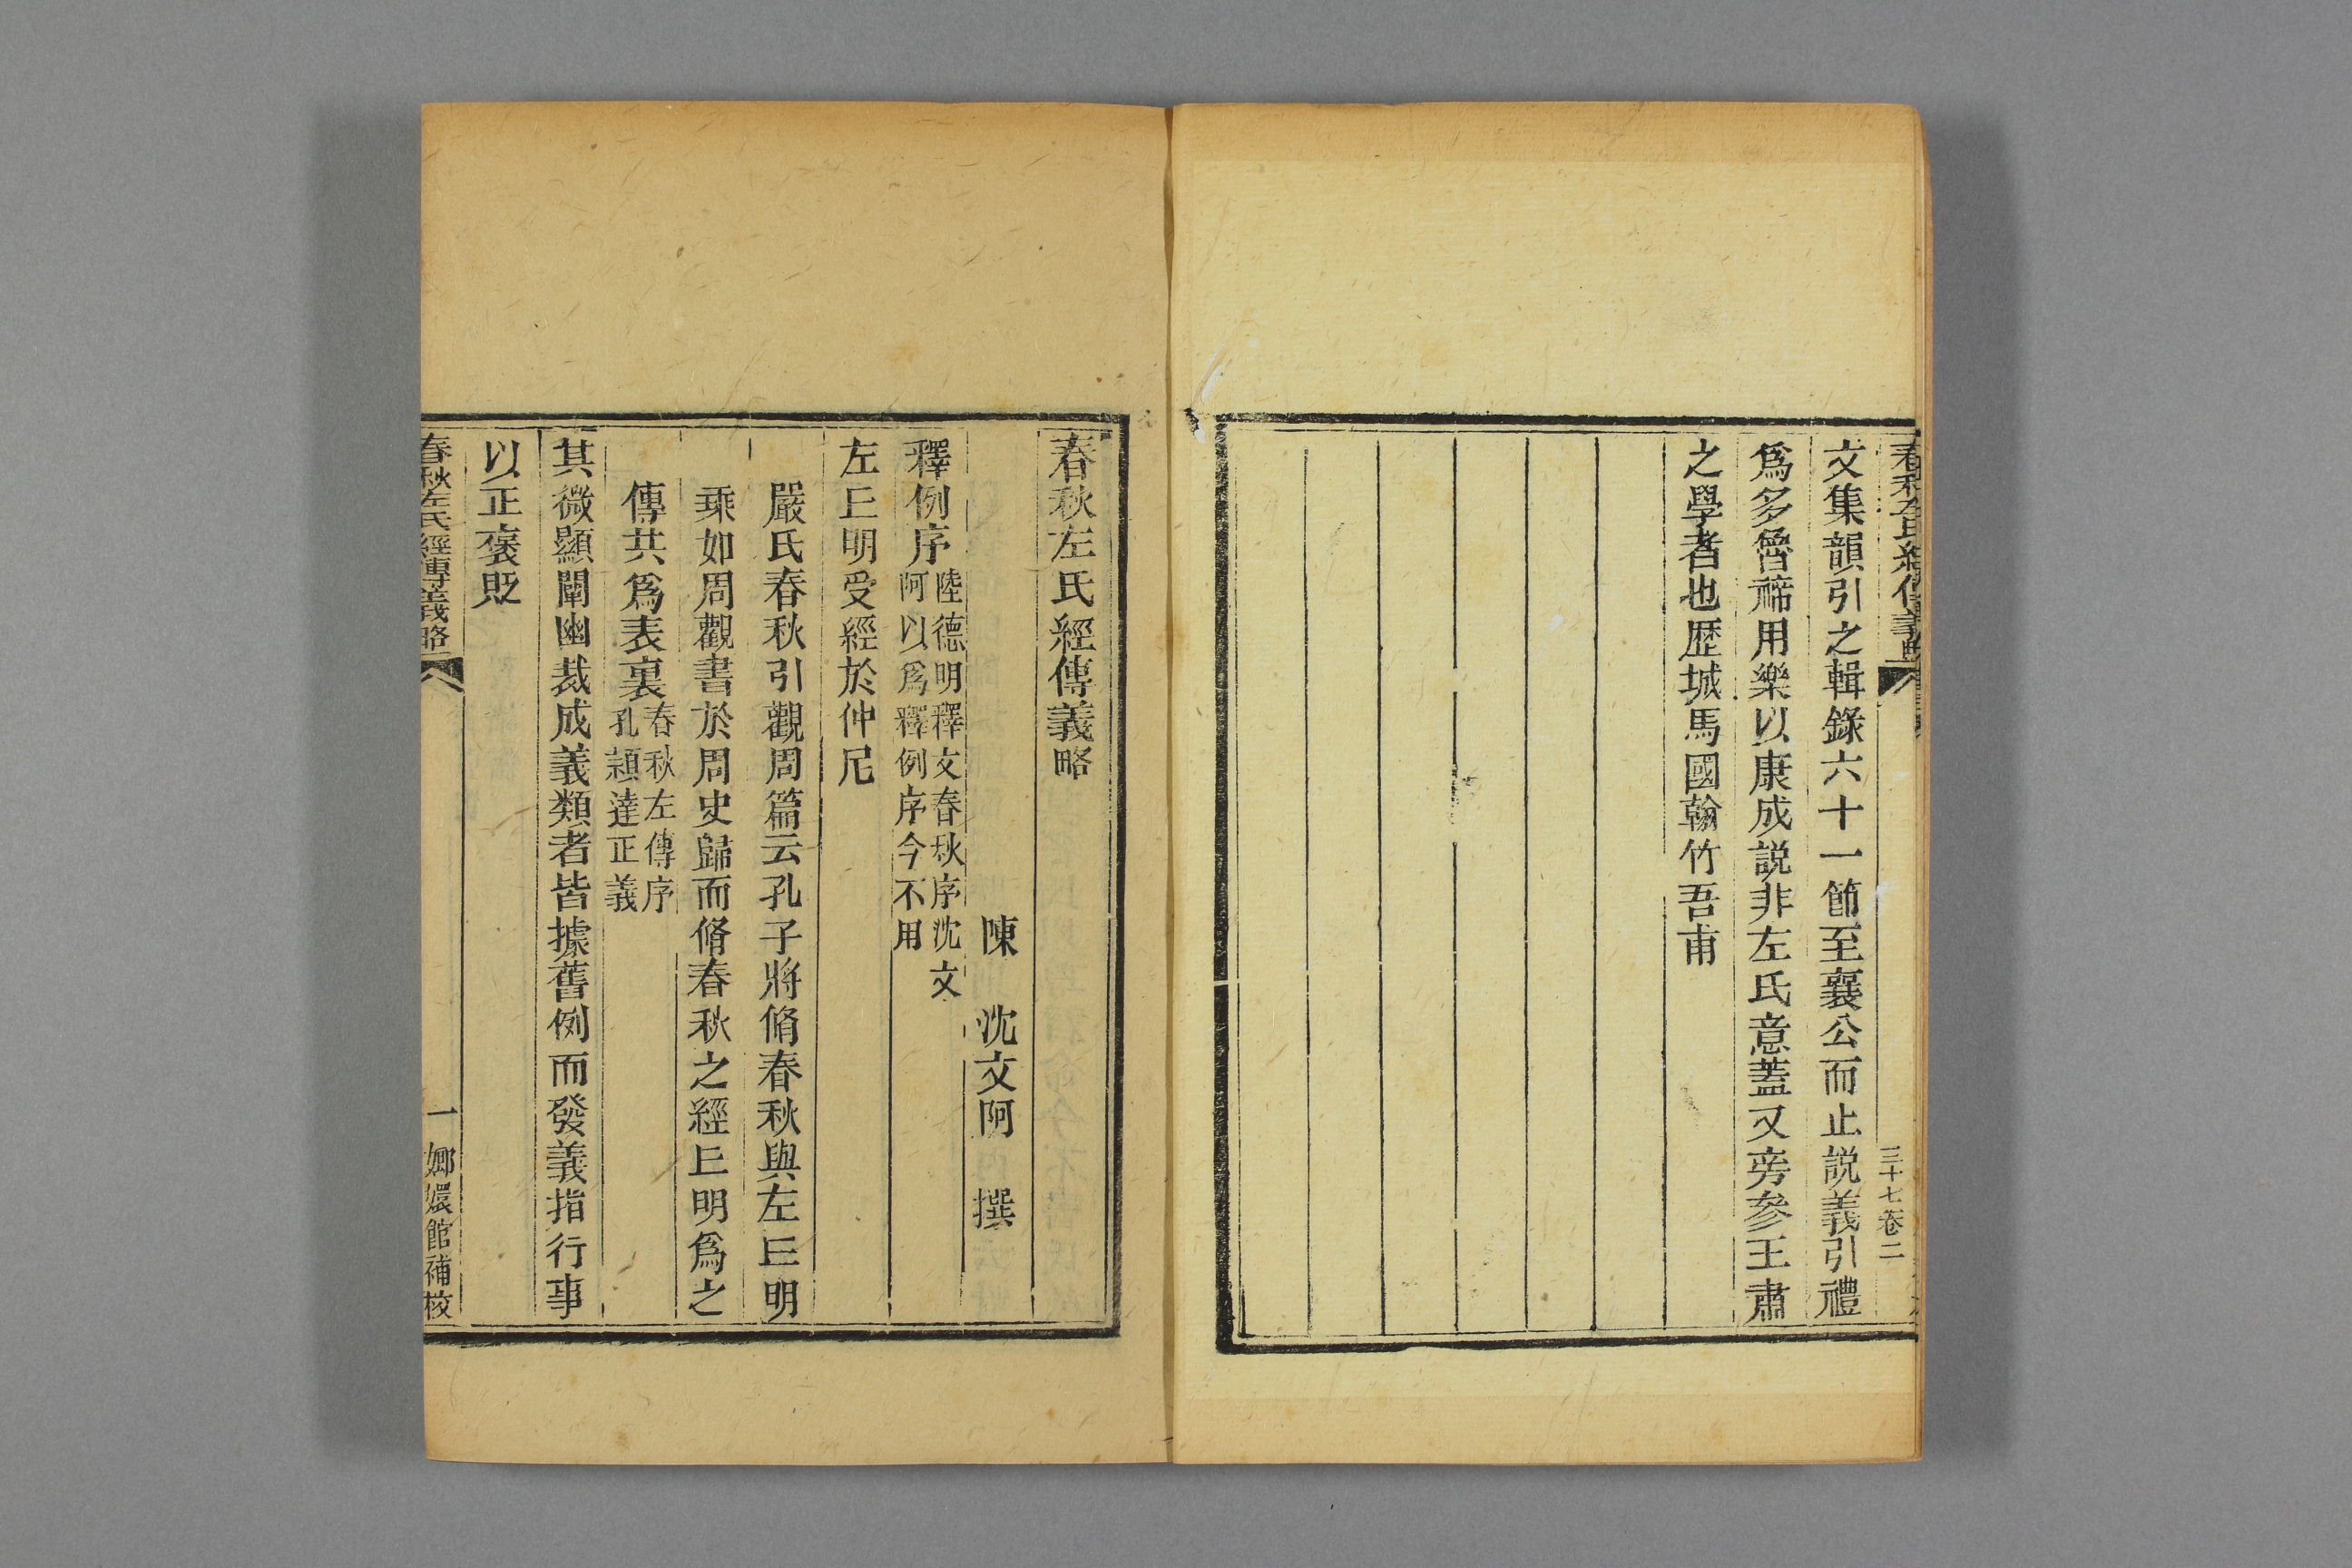 春秋左氏經傳義略
三十七卷二
文集韻引之輯錄六十一節至襄公而止説義引禮
爲多魯禘用樂以康成説非左氏意蓋又旁參王肅
之學者也歷城馬國翰竹吾甫
春秋左氏經傳義略
陳 沈文阿 撰
釋例序陸德明釋文春秋序沈文
阿以爲釋例序今不用
左丘明受經於仲尼
嚴氏春秋引觀周篇云孔子將脩春秋與左丘明
乘如周觀書於周史歸而脩春秋之經丘明爲之
傳共爲表裏春秋左傳序
孔穎達正義
其微顯闡幽裁成義類者皆據舊例而發義指行事
以正褒貶
春秋左氏經傳義略
一
嫏嬛館補校